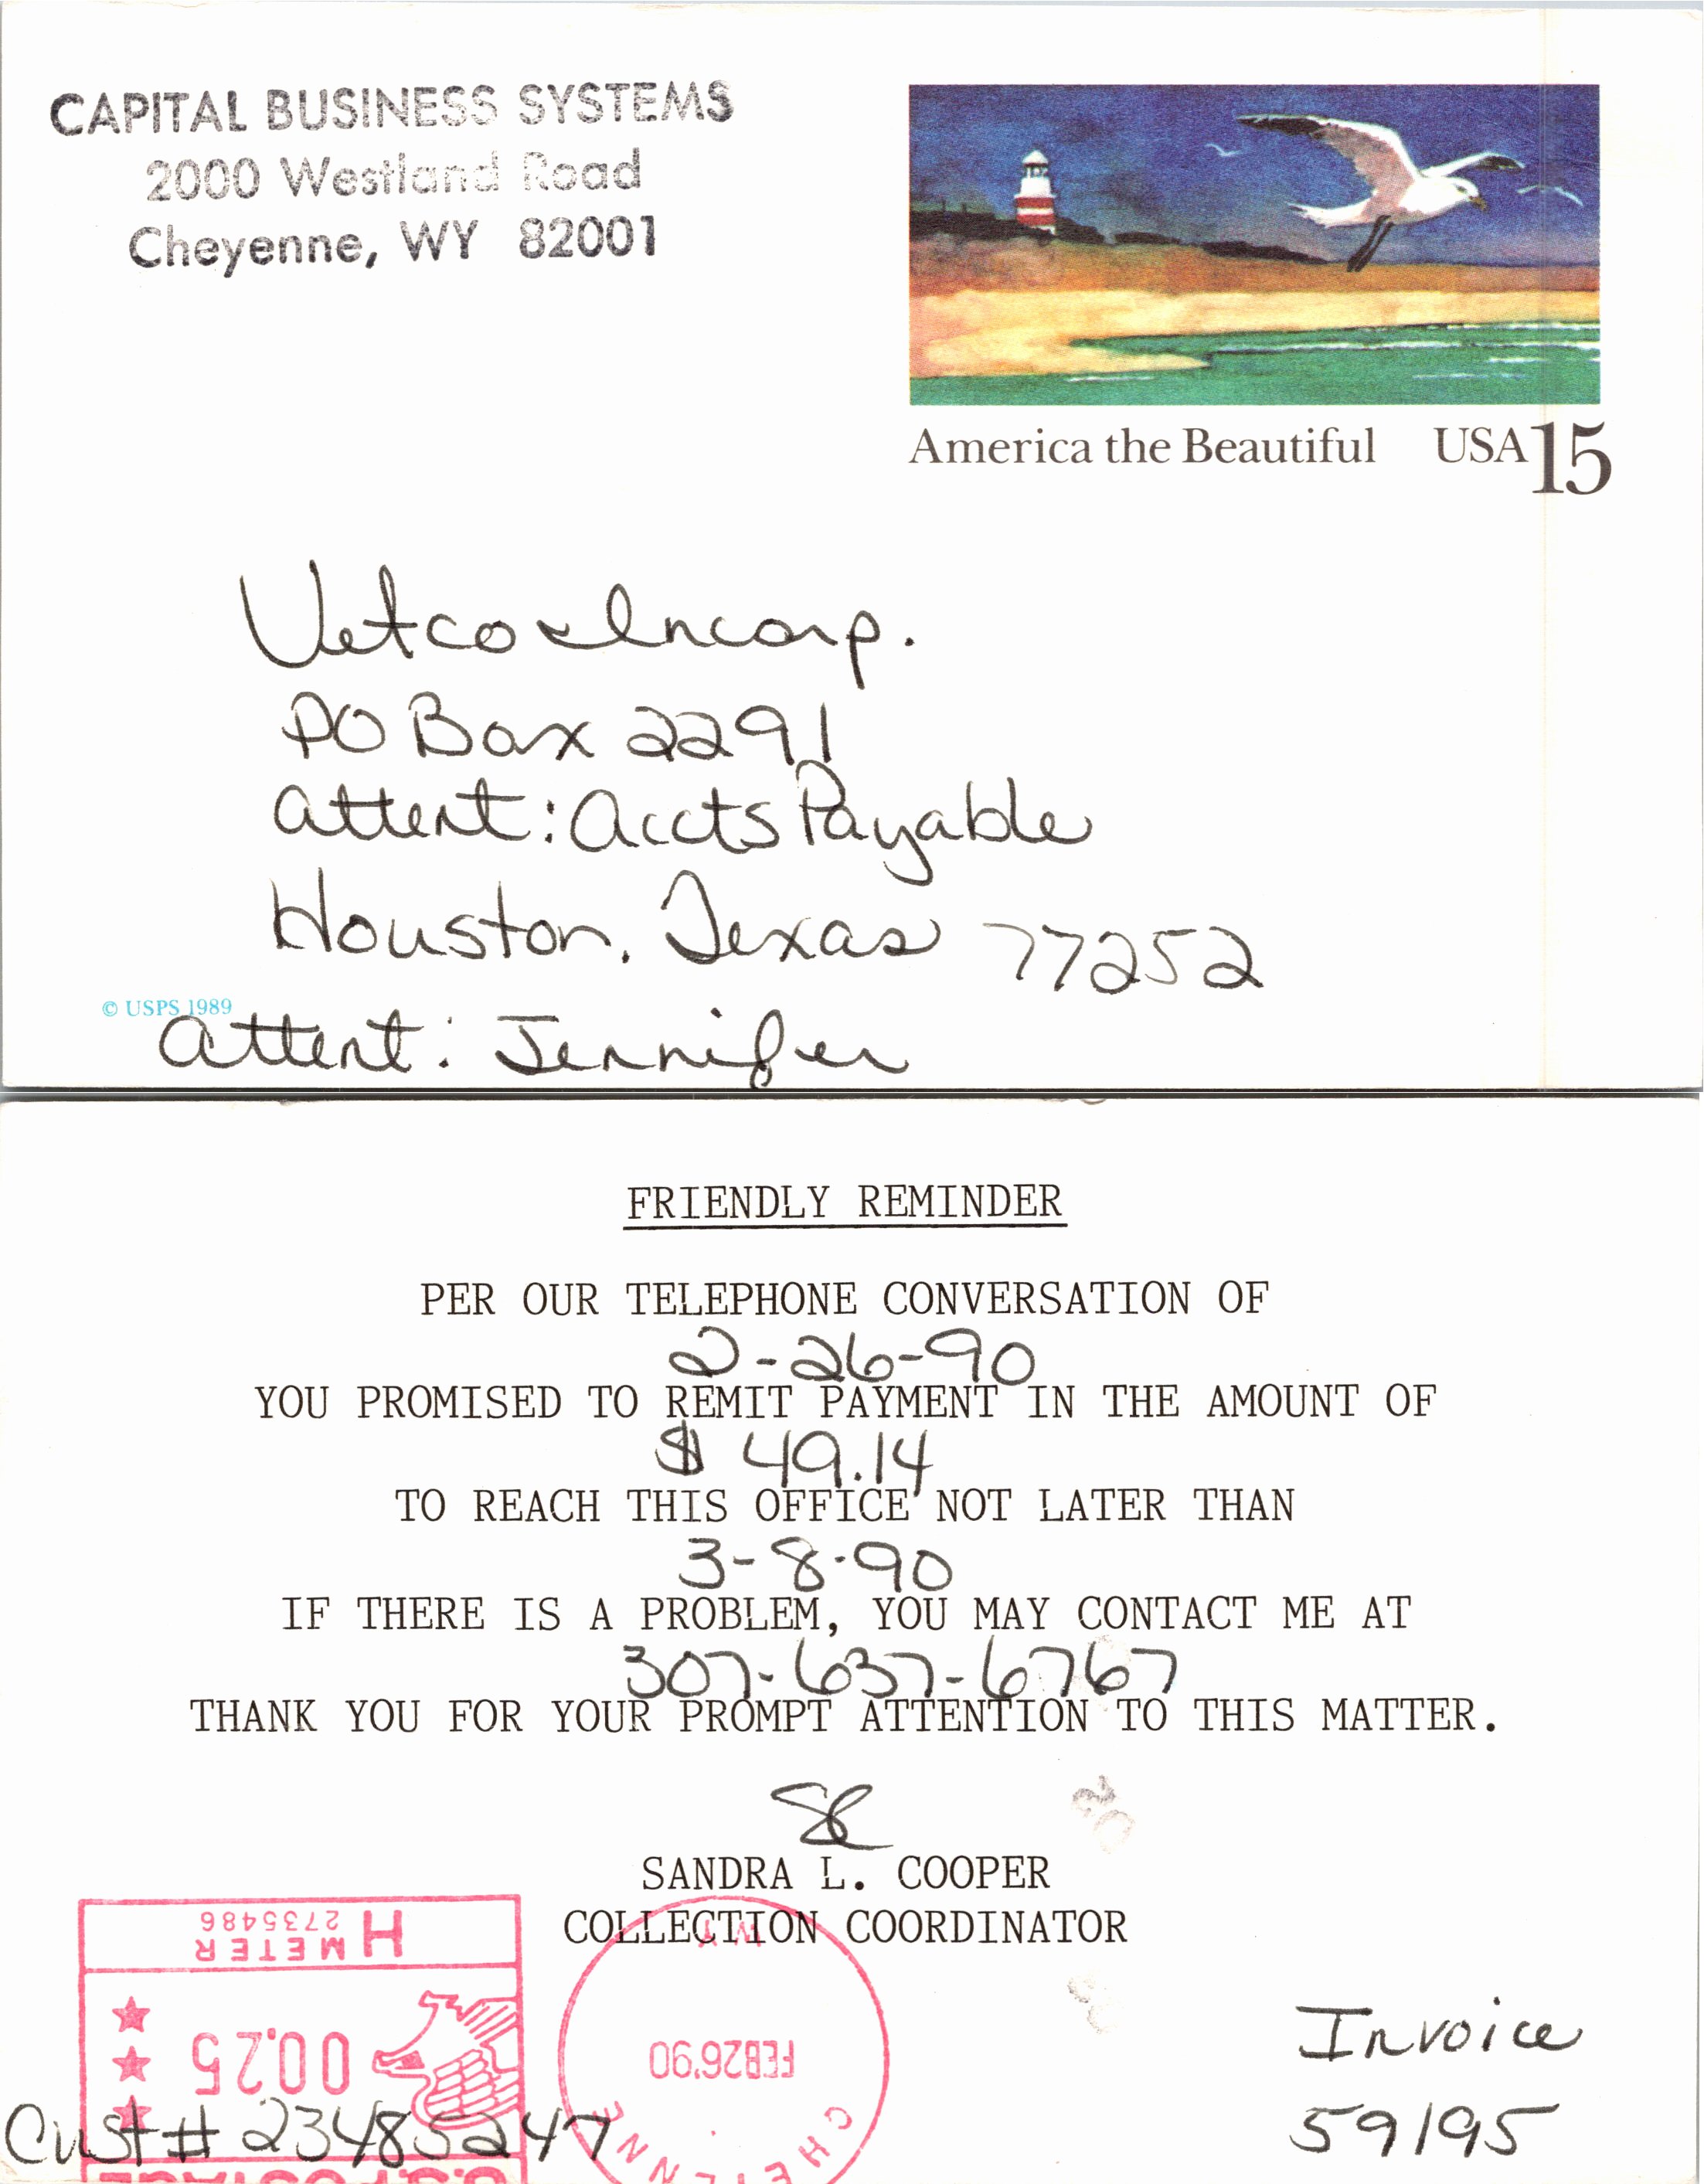 CAPITAL BUSINESS SYSTEMS
2000 Westland Road
Cheyenne, WY 82001
America the Beautiful USA 15
Vetco Incorp.
PO Box 2291
Attent: Accts Payable
Houston, Texas 77252
© USPS 1989
Attent: Jennifer
FRIENDLY REMINDER
PER OUR TELEPHONE CONVERSATION OF
2-26-90
YOU PROMISED TO REMIT PAYMENT IN THE AMOUNT OF
$ 49.14
TO REACH THIS OFFICE NOT LATER THAN
3-8-90
IF THERE IS A PROBLEM, YOU MAY CONTACT ME AT
307-637-6767
THANK YOU FOR YOUR PROMPT ATTENTION TO THIS MATTER.
SC
SANDRA L. COOPER
COLLECTION COORDINATOR
Invoice
59195
Cust # 23485247
U.S. POSTAGE
00.25
H METER
2735486
CHEYENNE
FEB26'90
WY